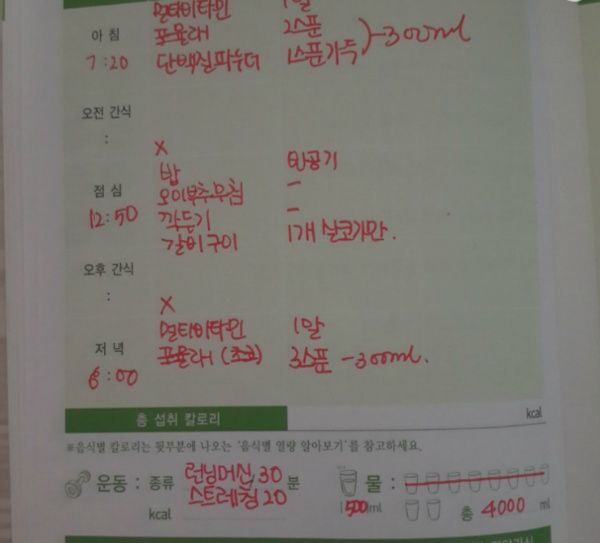 멀티비타민 1알
아 침 포뮬라 2스푼
7:20 단백질파우더 1스푼가득 -300ml
오전 간식
: X
밥 반공기
점 심 오이부추무침 -
12:50 깍두기 -
갈비구이 1개 살코기만.
오후 간식
: X
멀티비타민 1알
저 녁 포뮬라 (초코) 3스푼 -300ml.
6:00
총 섭취 칼로리 kcal
※음식별 칼로리는 뒷부분에 나오는 '음식별 열량 알아보기'를 참고하세요.
운동 : 종류 런닝머신 30 분 물 :
kcal 스트레칭 20 500ml 총 4000 ml